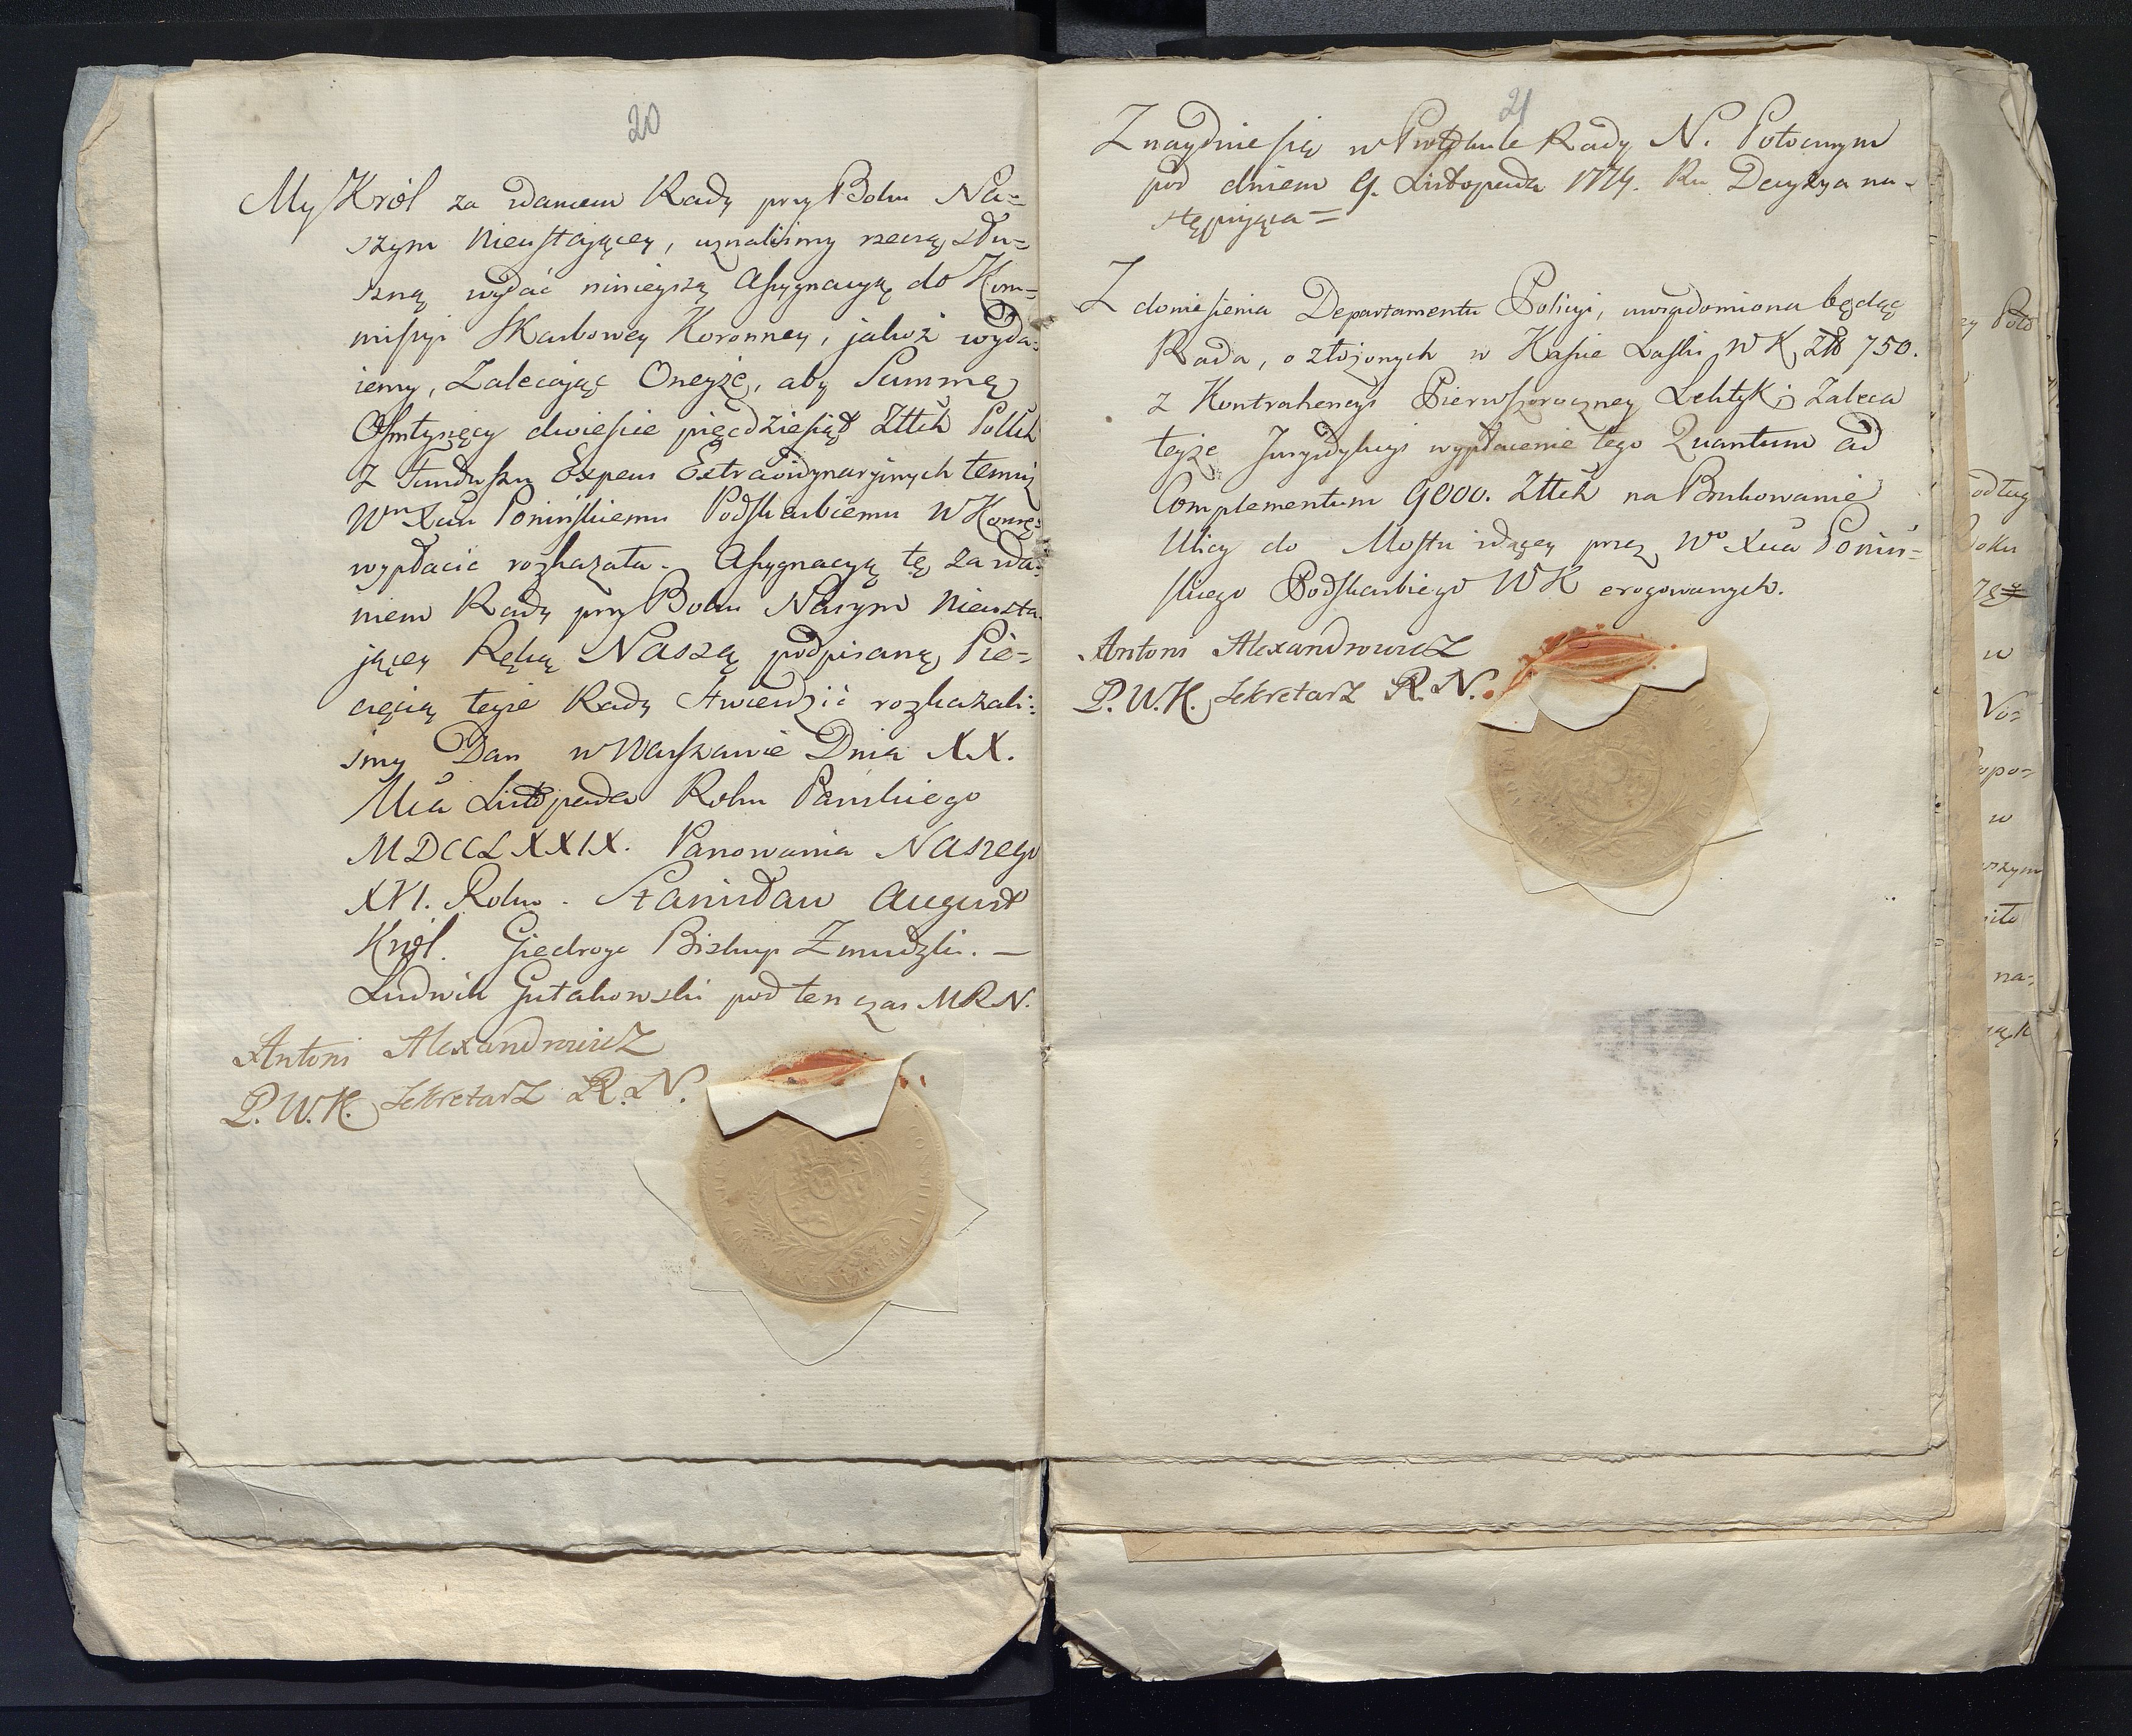 20
My Król za zdaniem Rady przy Boku Na=
szym Nieustaiącey, uznaliśmy rzeczą słu=
szną wydać ninieyszą Assygnacyą do Kom=
missyi Skarbowey Koronney, jakoż wyda=
iemy, Zalecając Oneyże, aby Summę
Ośmtysięcy dwieście pięcdziesiąt Złtch Polch
z Funduszu Expens Extraordynaryinych temuż
Wmu Xciu Ponińskiemu Podskarbiemu W Koron:
wypłacić rozkazała. Assygnacyą tę za zda=
niem Rady przy Boku Naszym Nieusta
jącey Ręką Naszą podpisaną Pie=
częcią teyże Rady stwierdzić rozkazali=
smy Dan w Warszawie Dnia XX.
Mca Listopada Roku Pańskiego
MDCCLXXIX. Panowania Naszego
XVI. Roku. Stanisław August
Król. Giedroyc Biskup Zmudzki. —
Ludwik Gutakowski pod ten czas MRN.
Antoni Alexandrowicz
P.W.K. Sekretarz R.N.
21
Znayduie się w Protokule Rady N. Potocznym
pod dniem 9. Listopada 1779. Ru Decyzya na-
stępuiąca=
Z doniesienia Departamentu Policyi, uwiadomiona będąc
Rada, o złożonych w Kassie Laski W K Zło 750.
z Kontrahencyi Pierwszoroczney Lektyk; Zaleca
teyże Juryzdykcyi wypłacenie tego Quantum ad
Complementum 9000. Złtch na Brukowanie
Ulicy do Mostu idącey przez Wo Xcia Poniń=
skiego Podskarbiego WK erogowanych.
Antoni Alexandrowicz
P.W.K. Sekretarz R.N.